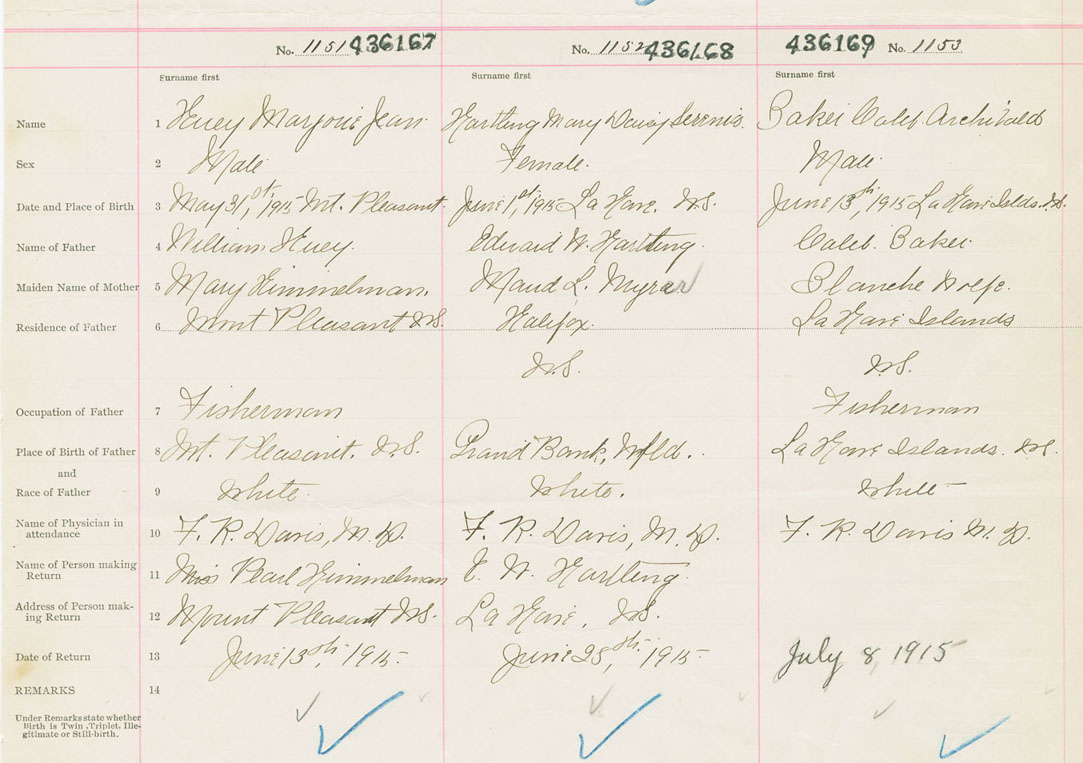 No. 1151 436167 No. 1152 436168 436169 No. 1153
Surname first Surname first Surname first
Name 1 Huey Marjorie Jean Hartling Mary Daisy Serenis. Baker Caleb Archibald
Sex 2 Male Female. Male
Date and Place of Birth 3 May 31st, 1915 Mt. Pleasant. June 1st, 1915 La Have. N.S. June 13th, 1915 La Have Islds. N.S.
Name of Father 4 William Huey. Edward W. Hartling. Caleb. Baker.
Maiden Name of Mother 5 Mary Himmelman. Maud L. Myrer Blanche Wolfe.
Residence of Father 6 Mount Pleasant N.S. Halifax. La Have Islands
N.S. N.S.
Occupation of Father 7 Fisherman Fisherman
Place of Birth of Father 8 Mt. Pleasant. N.S. Grand Bank, Nfld. La Have Islands. N.S.
and
Race of Father 9 White. White. White
Name of Physician in
attendance 10 F. R. Davis, M.D. F. R. Davis, M.D. F. R. Davis M.D.
Name of Person making
Return 11 Miss Pearl Himmelman E. W. Hartling.
Address of Person mak-
ing Return 12 Mount Pleasant N.S. La Have, N.S.
Date of Return 13 June 13th, 1915 June 25th, 1915 July 8, 1915
REMARKS 14
Under Remarks state whether
Birth is Twin, Triplet, Ille-
gitimate or Still-birth.